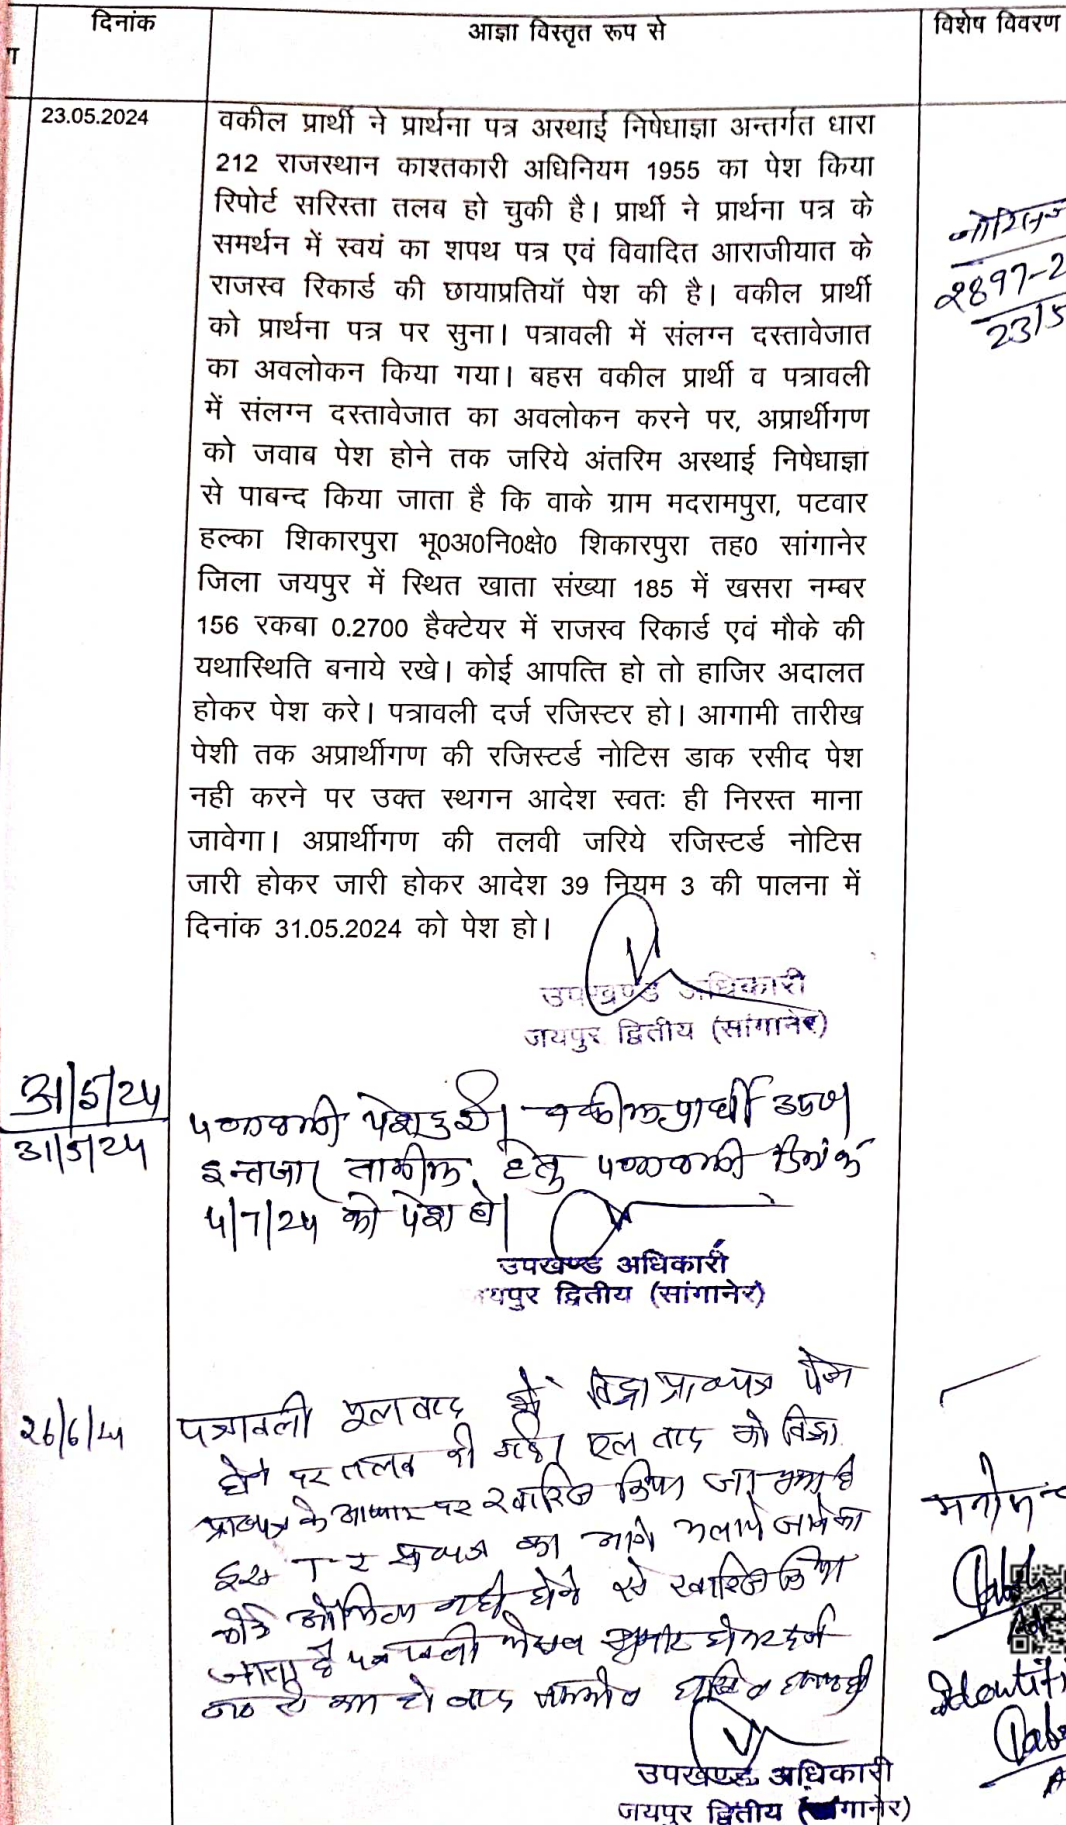 दिनांक
आज्ञा विस्तृत रूप से
विशेष विवरण
23.05.2024
वकील प्रार्थी ने प्रार्थना पत्र अस्थाई निषेधाज्ञा अन्तर्गत धारा
212 राजस्थान काश्तकारी अधिनियम 1955 का पेश किया
रिपोर्ट सरिस्ता तलब हो चुकी है। प्रार्थी ने प्रार्थना पत्र के
समर्थन में स्वयं का शपथ पत्र एवं विवादित आराजीयात के
राजस्व रिकार्ड की छायाप्रतियॉ पेश की है। वकील प्रार्थी
को प्रार्थना पत्र पर सुना। पत्रावली में संलग्न दस्तावेजात
का अवलोकन किया गया। बहस वकील प्रार्थी व पत्रावली
में संलग्न दस्तावेजात का अवलोकन करने पर, अप्रार्थीगण
को जवाब पेश होने तक जरिये अंतरिम अस्थाई निषेधाज्ञा
से पाबन्द किया जाता है कि वाके ग्राम मदरामपुरा, पटवार
हल्का शिकारपुरा भू0अ0नि0क्षे0 शिकारपुरा तह0 सांगानेर
जिला जयपुर में स्थित खाता संख्या 185 में खसरा नम्बर
156 रकबा 0.2700 हैक्टेयर में राजस्व रिकार्ड एवं मौके की
यथास्थिति बनाये रखे। कोई आपत्ति हो तो हाजिर अदालत
होकर पेश करे। पत्रावली दर्ज रजिस्टर हो। आगामी तारीख
पेशी तक अप्रार्थीगण की रजिस्टर्ड नोटिस डाक रसीद पेश
नही करने पर उक्त स्थगन आदेश स्वतः ही निरस्त माना
जावेगा। अप्रार्थीगण की तलवी जरिये रजिस्टर्ड नोटिस
जारी होकर जारी होकर आदेश 39 नियम 3 की पालना में
दिनांक 31.05.2024 को पेश हो।
2897-2
23/5
उपखण्ड अधिकारी
जयपुर द्वितीय (सांगानेर)
31/5/24
31/5/24
पत्रावली पेश हुई। वकील प्रार्थी उप०।
इन्तजार तामील हेतु पत्रावली दिनांक
4/7/24 को पेश हो।
उपखण्ड अधिकारी
जयपुर द्वितीय (सांगानेर)
26/6/24
पत्रावली मूल वाद में विड्रा प्रा०पत्र पेश
होने पर तलब की गई। मूल वाद को विड्रा
प्रा०पत्र के आधार पर खारिज किया जा चुका है
इस T I का आगे चलाये जाने का
कोई औचित्य नही होने से खारिज किया
जाता है पत्रावली फैसल शुमार होकर दर्ज
न० से कम हो बाद दाखिल दफ्तर हो
उपखण्ड अधिकारी
जयपुर द्वितीय (सांगानेर)